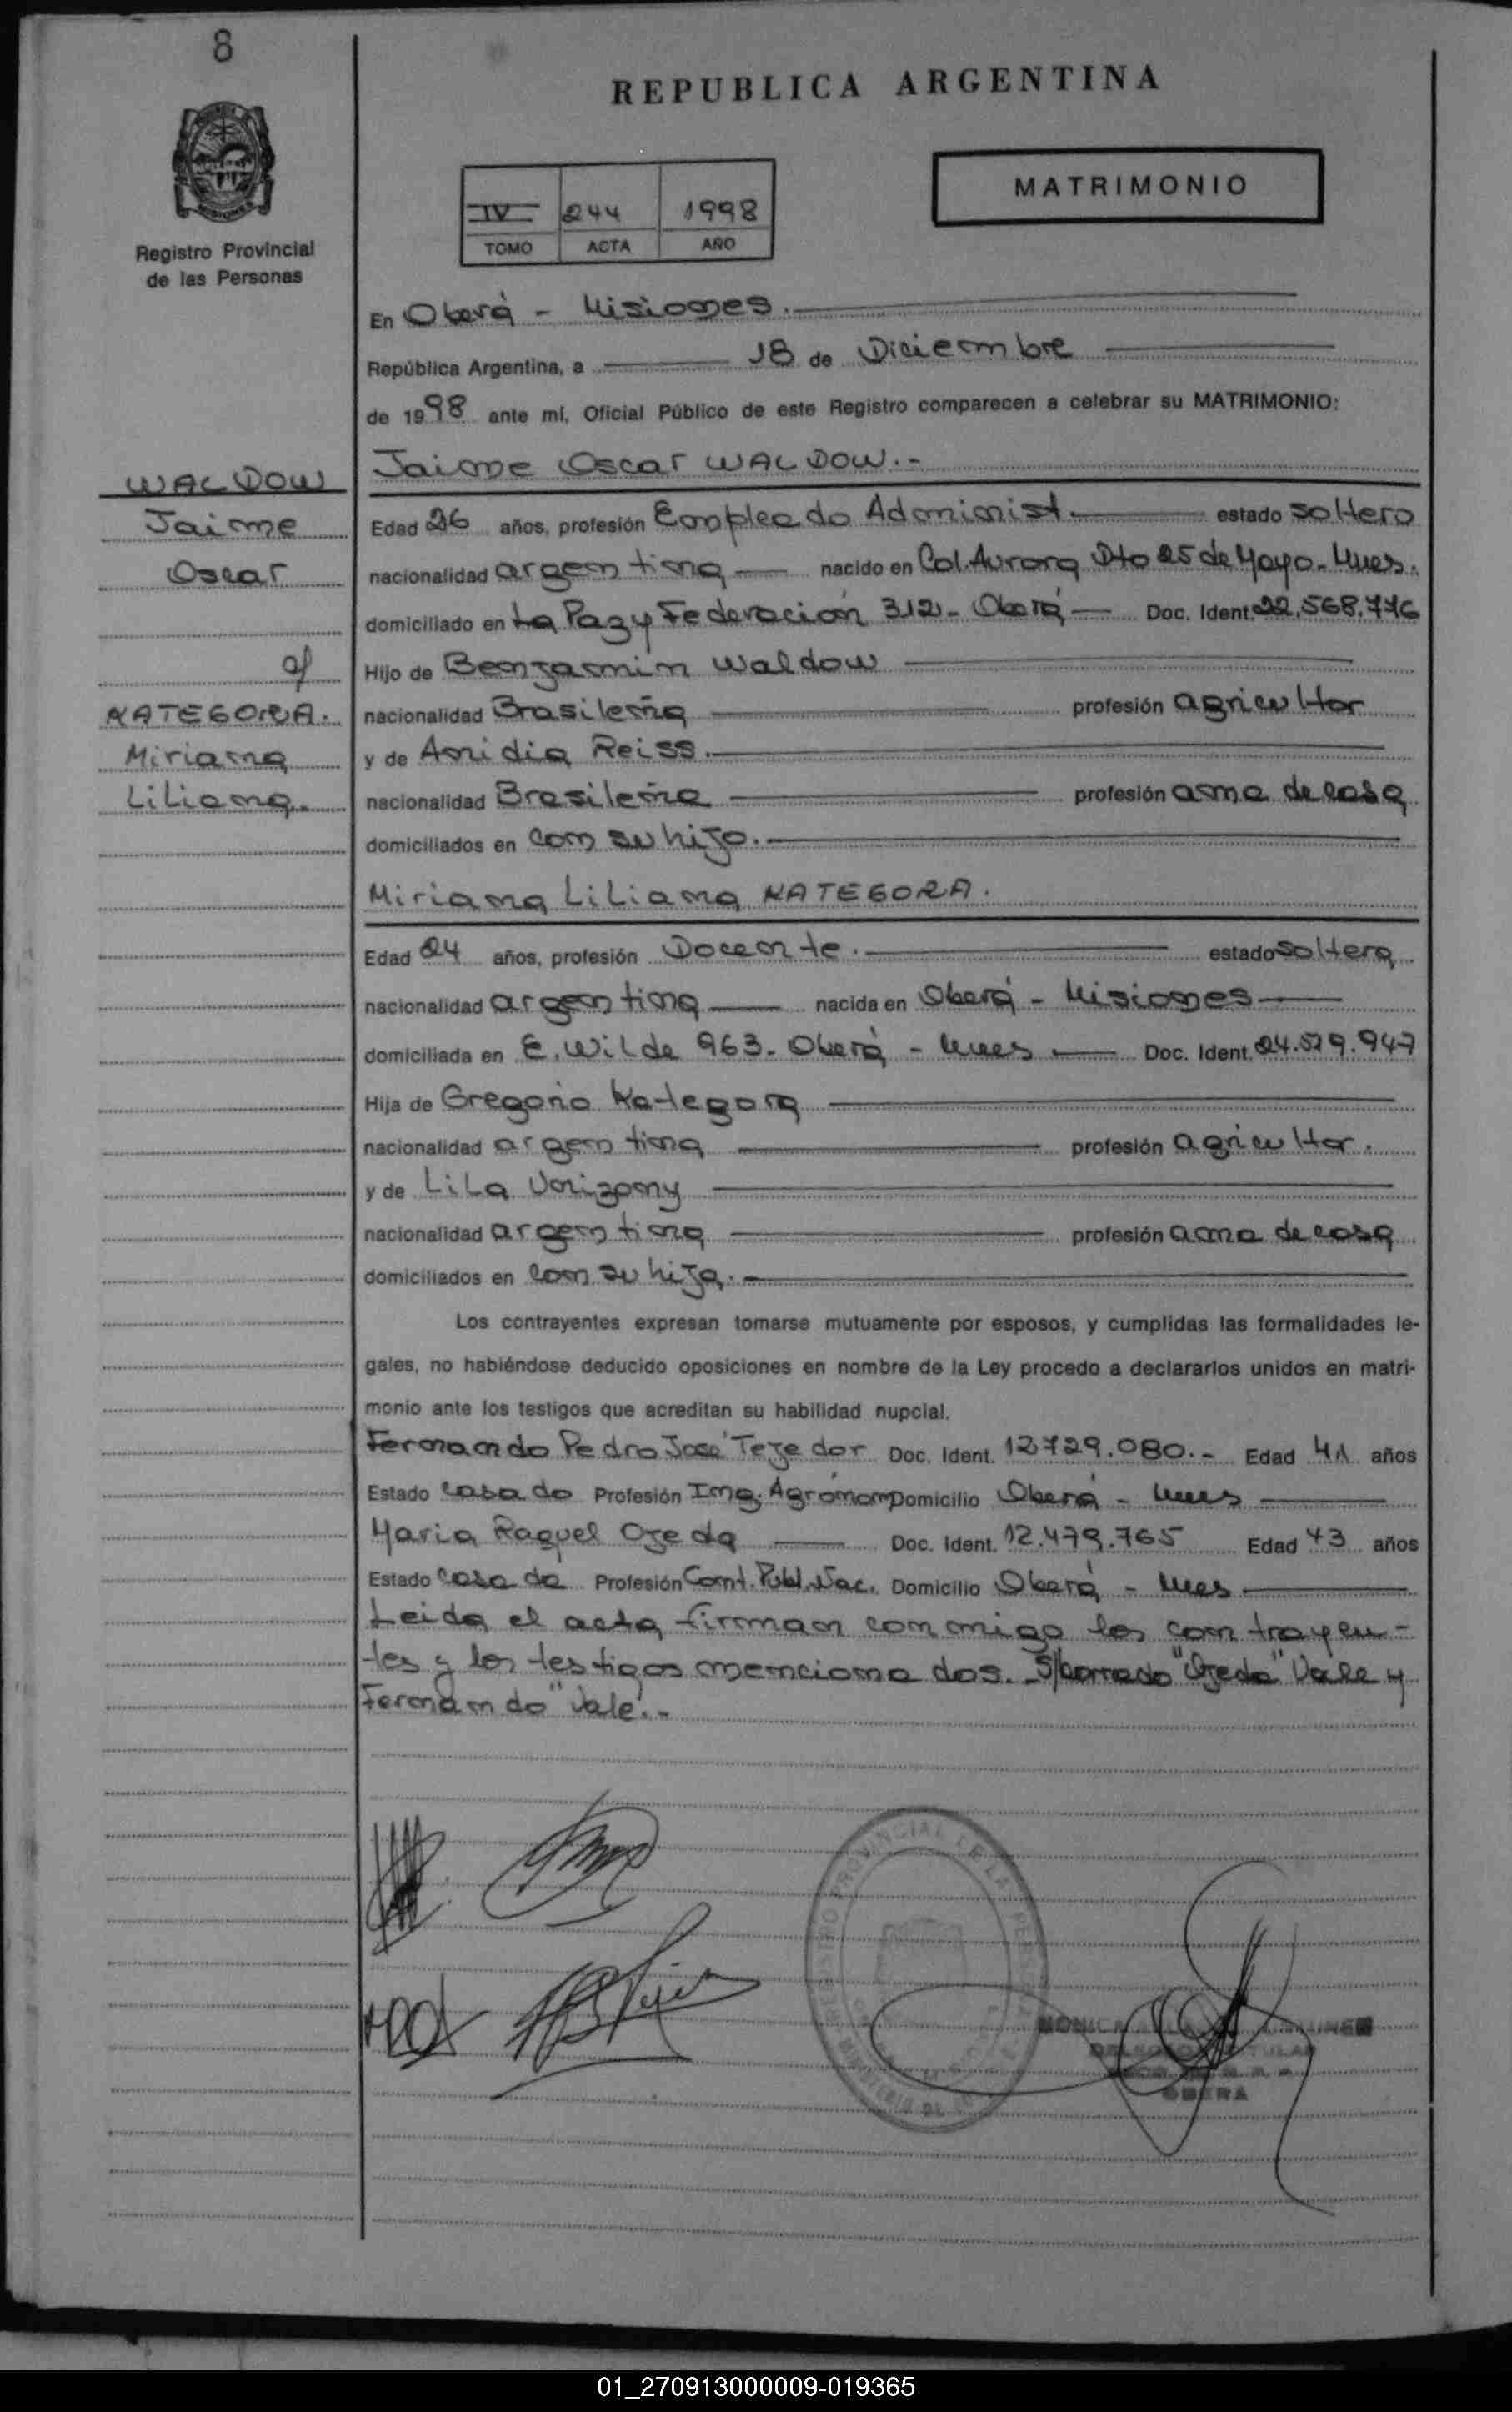 8
REPUBLICA ARGENTINA
MATRIMONIO
IV 244 1998
TOMO ACTA AÑO
Registro Provincial
de las Personas
En Oberá - Misiones.
República Argentina, a 18 de Diciembre
de 1998 ante mí, Oficial Público de este Registro comparecen a celebrar su MATRIMONIO:
WALDOW
Jaime
Oscar
c/
KATEGORA.
Miriama
Liliana.
Jaime Oscar WALDOW.-
Edad 26 años, profesión Empleado Administ. estado soltero
nacionalidad argentina nacido en Col. Aurora Dto 25 de Mayo-Mnes.
domiciliado en La Paz y Federación 312- Oberá Doc. Ident. 22.568.776
Hijo de Benjamin Waldow
nacionalidad Brasileña profesión agricultor
y de Anidia Reiss.
nacionalidad Brasileña profesión ama de casa
domiciliados en con su hijo.
Miriama Liliana KATEGORA.
Edad 24 años, profesión Docente. estado soltera
nacionalidad argentina nacida en Oberá - Misiones
domiciliada en E. Wilde 963- Oberá - Mnes Doc. Ident. 24.579.947
Hija de Gregorio Kategora
nacionalidad argentina profesión agricultor.
y de Lila
nacionalidad argentina profesión ama de casa
domiciliados en con su hija.
Los contrayentes expresan tomarse mutuamente por esposos, y cumplidas las formalidades le-
gales, no habiéndose deducido oposiciones en nombre de la Ley procedo a declararlos unidos en matri-
monio ante los testigos que acreditan su habilidad nupcial.
Fernando Pedro José Tejedor Doc. Ident. 12729.080.- Edad 41 años
Estado casado Profesión Ing. Agrónom Domicilio Oberá - Mnes
Maria Raquel Ojeda Doc. Ident. 12.479.765 Edad 43 años
Estado casada Profesión Cont. Publ. Nac. Domicilio Oberá - Mnes
Leida el acta firman conmigo los contrayen-
tes y los testigos mencionados. S/borrado "Ojeda" Vale y
Fernando" Vale.-
OBERA
01_270913000009-019365